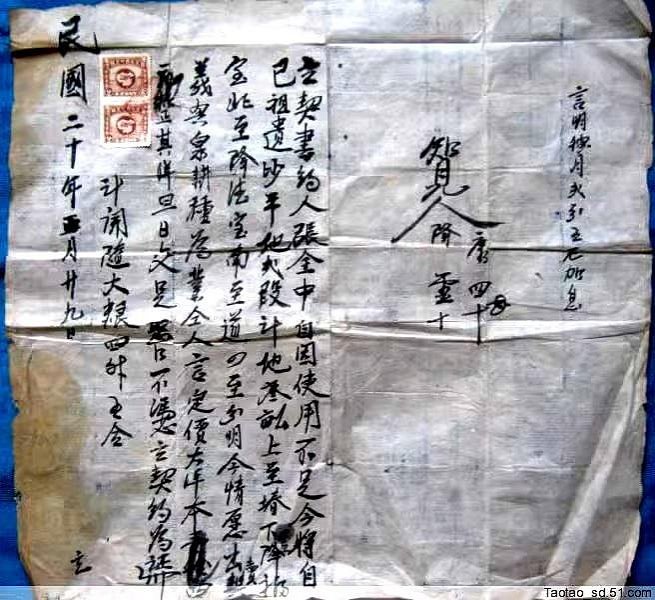 言明按月弍分五厘加息
知見人 降 唐 四 十
靈 十
立契書約人張全中自因使用不足今將自
己祖遺沙平地弍段計地叁畝上至堾下降
宝北至降法宝南至道四至分明今情愿出
義 泉耕種為業仝人言定價大洋本
整其佯旦日交足 不憑立契約為証
计開隨大粮四升五合
民國二十年五月廿九日
立
Taotao_sd.51.com